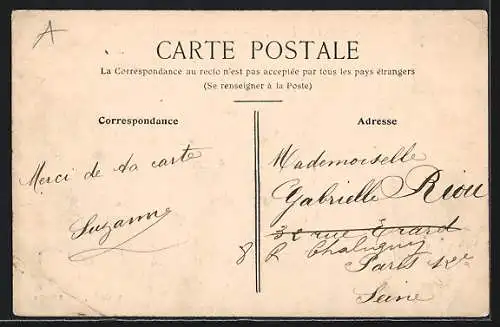 A
CARTE POSTALE
La Correspondance au recto n'est pas acceptée par tous les pays étrangers
(Se renseigner à la Poste)
Correspondance
Adresse
Merci de ta carte
Suzanne
Mademoiselle
Gabrielle Riou
rue Erard
8 R Chaligny
Paris 12e
Seine